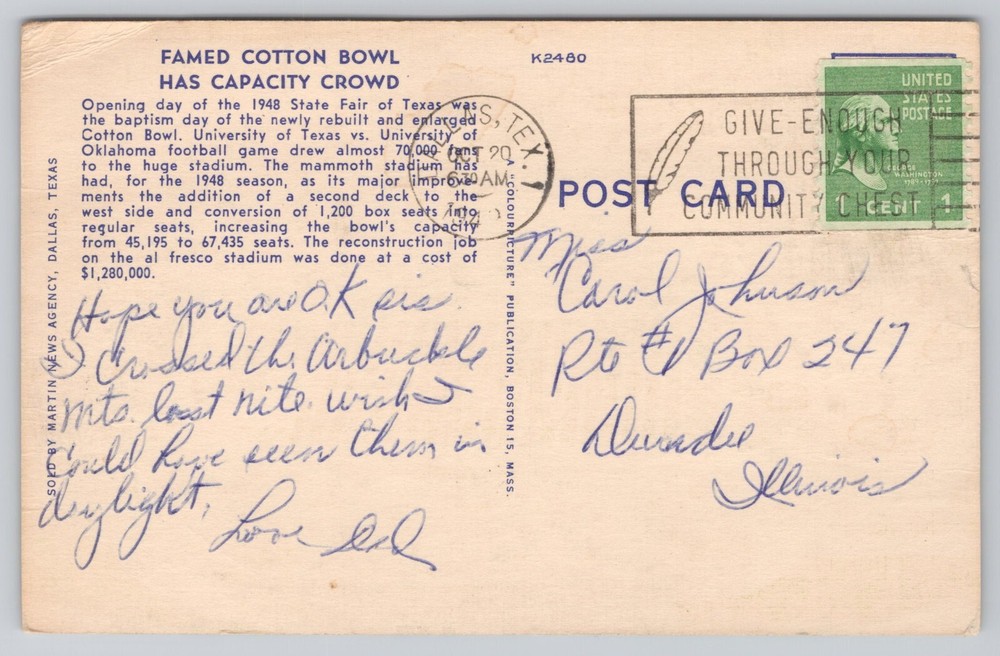 FAMED COTTON BOWL
HAS CAPACITY CROWD
Opening day of the 1948 State Fair of Texas was
the baptism day of the newly rebuilt and enlarged
Cotton Bowl. University of Texas vs. University of
Oklahoma football game drew almost 70,000 fans
to the huge stadium. The mammoth stadium has
had, for the 1948 season, as its major improve-
ments the addition of a second deck to the
west side and conversion of 1,200 box seats into
regular seats, increasing the bowl's capacity
from 45,195 to 67,435 seats. The reconstruction job
on the al fresco stadium was done at a cost of
$1,280,000.
Hope you are O.K sis.
I crossed the Arbuckle
Mts. last nite. wish I
Could have seen them in
daylight.
Love Dad
SOLD BY MARTIN NEWS AGENCY, DALLAS, TEXAS
A "COLOURPICTURE" PUBLICATION, BOSTON 15, MASS.
K2480
TEX.
OCT 20
630 AM
GIVE-ENOUGH
THROUGH YOUR
COMMUNITY CHEST
UNITED
STATES
POSTAGE
WASHINGTON
1789-1797
1 CENT 1
POST CARD
Miss
Carol Johnson
Rte #1 Box 247
Dundee
Illinois